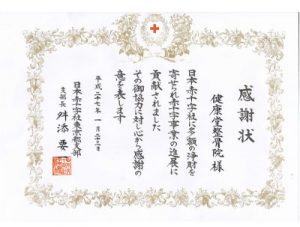 感謝状
健康堂整骨院 様
日本赤十字社に多額の浄財を
寄せられ赤十字事業の進展に
貢献されました
その御協力に対し心から感謝の
意を表します
平成二十七年一月二十三日
日本赤十字社東京都支部
支部長 舛添要一